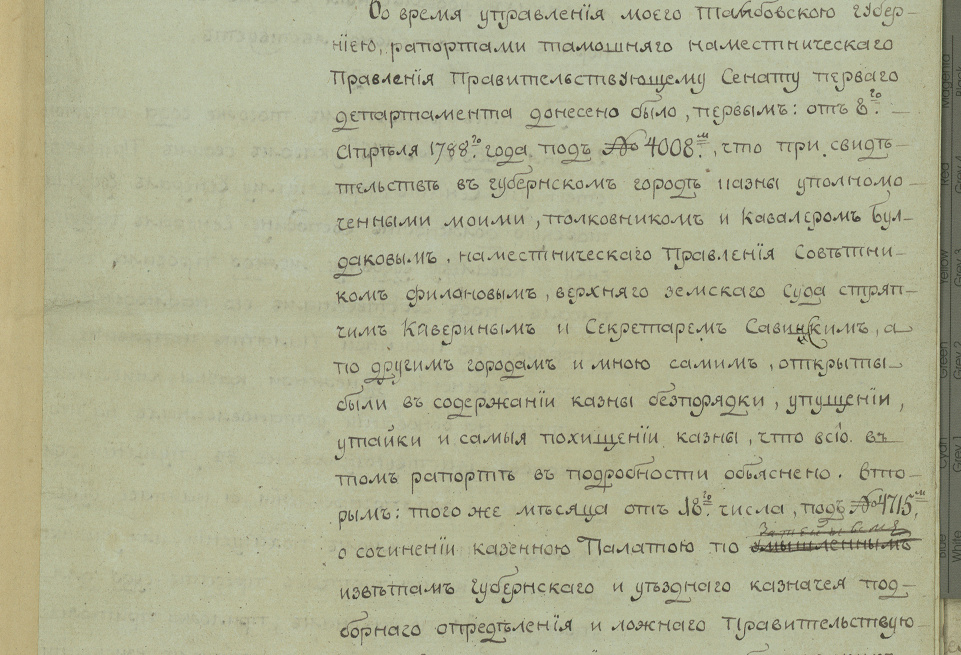 Во время управленїя моего Тамбовскою губер-
нїею, рапортами тамошняго наместническаго
Правленїя Правительствующему Сенату перваго
департамента донесено было, первымъ: отъ 8.го
Апрѣля 1788.го года подъ № 4008.м, что при свидѣ-
тельствѣ въ губернскомъ городѣ казны уполномо-
ченными моими, полковникомъ и Кавалеромъ Бул-
даковымъ, наместническаго Правленїя Совѣтни-
комъ филановымъ, верхняго земскаго Суда стряп-
чимъ Каверинымъ и Секретаремъ Савицкимъ, а
по другимъ городамъ и мною самимъ, открыты
были въ содержанїи казны безпорядки, упущенїи,
утайки и самыя похищенїи казны, что всїо въ
томъ рапортѣ въ подробности объяснено. Вто-
рымъ: того же мѣсяца отъ 18.го числа, подъ № 4715.м
о сочиненїи казенною Палатою по умышленнымъ
извѣтамъ Губернскаго и уѣзднаго казначея под-
борнаго опредѣленїя и ложнаго Правительствую-